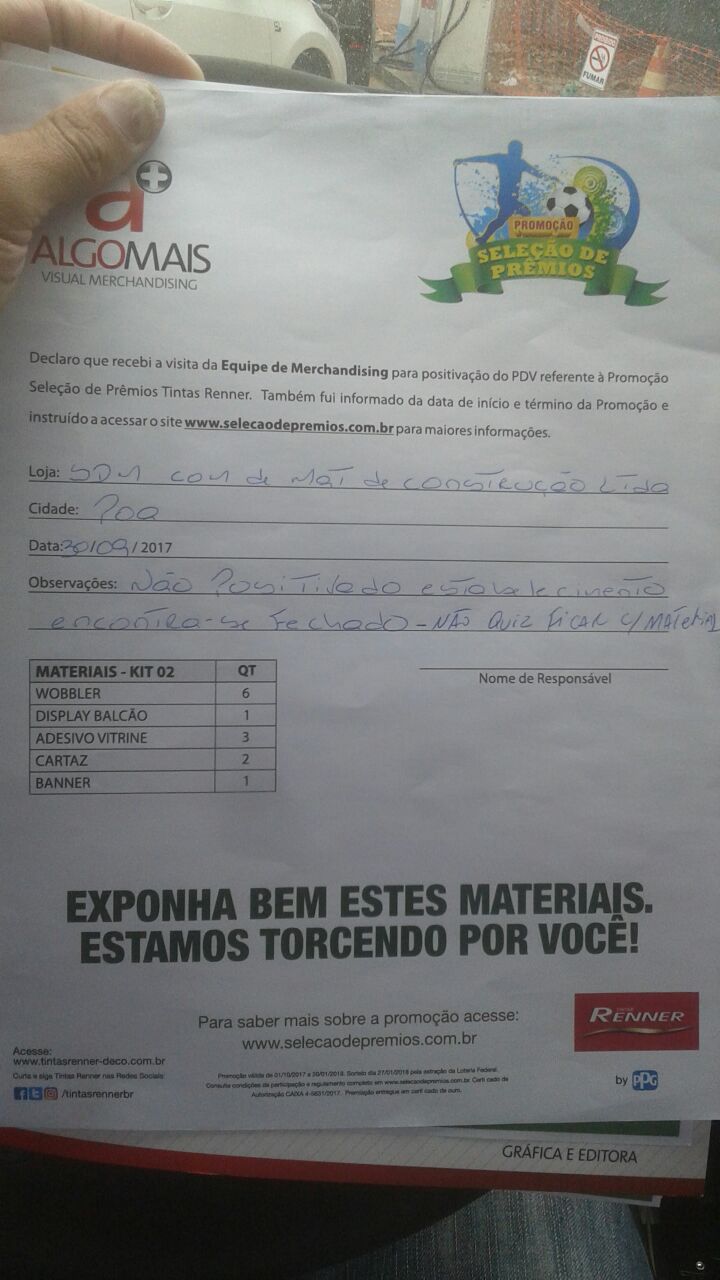 PROIBIDO
FUMAR
a+
ALGOMAIS
VISUAL MERCHANDISING
PROMOÇÃO
SELEÇÃO DE
PRÊMIOS
Declaro que recebi a visita da Equipe de Merchandising para positivação do PDV referente à Promoção
Seleção de Prêmios Tintas Renner. Também fui informado da data de início e término da Promoção e
instruído a acessar o site www.selecaodepremios.com.br para maiores informações.
Loja: SDM com de Mat de construção Ltda
Cidade: Poa
Data: 30/09/2017
Observações: Não Positivado estabelecimento
encontra-se Fechado - NÃO QUIZ FICAR C/ MATERIAL
Nome de Responsável
MATERIAIS - KIT 02 QT
WOBBLER 6
DISPLAY BALCÃO 1
ADESIVO VITRINE 3
CARTAZ 2
BANNER 1
EXPONHA BEM ESTES MATERIAIS.
ESTAMOS TORCENDO POR VOCÊ!
Para saber mais sobre a promoção acesse:
www.selecaodepremios.com.br
TINTAS
RENNER
by PPG
Acesse:
www.tintasrenner-deco.com.br
Curta e siga Tintas Renner nas Redes Sociais:
/tintasrennerbr
Promoção válida de 01/10/2017 a 20/01/2018. Sorteio dia 27/01/2018 pela extração da Loteria Federal.
Consulte condições de participação e regulamento completo em www.selecaodepremios.com.br. Certi cado de
Autorização CAIXA 4-5631/2017. Premiação entregue em certi cado de ouro.
GRÁFICA E EDITORA